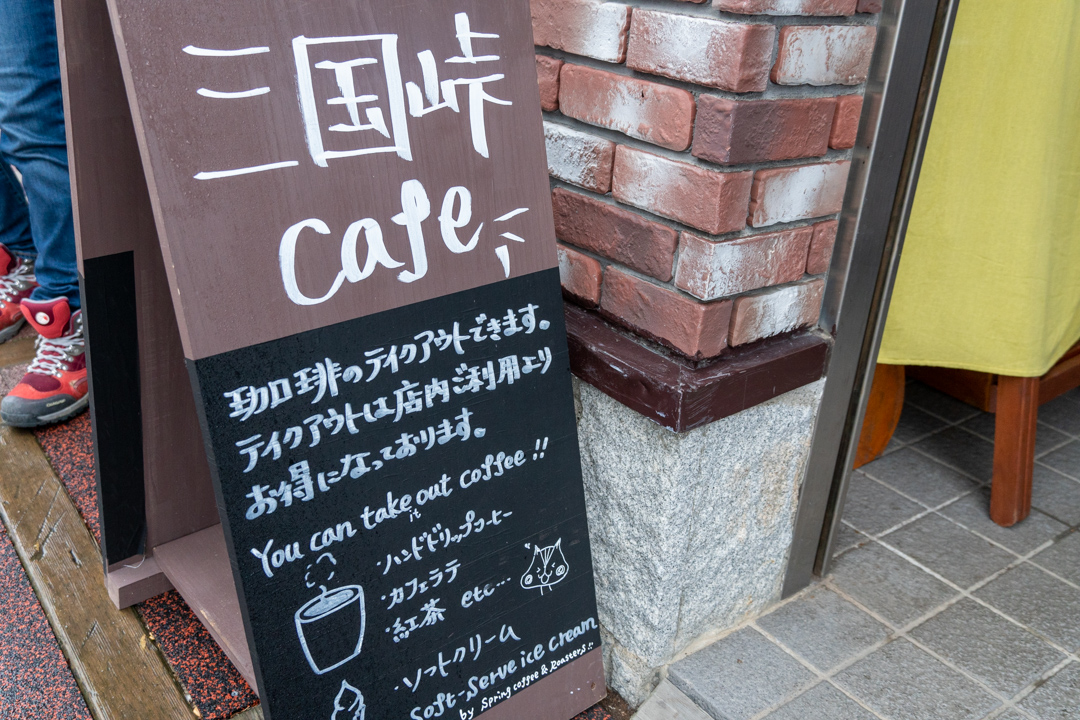 三国峠
cafe
珈琲のテイクアウトできます。
テイクアウトは店内ご利用より
お得になっております。
You can take it out coffee !!
・ハンドドリップコーヒー
・カフェラテ
・紅茶 etc…
・ソフトクリーム
Soft-Serve ice cream
by Spring coffee & Roasters!!